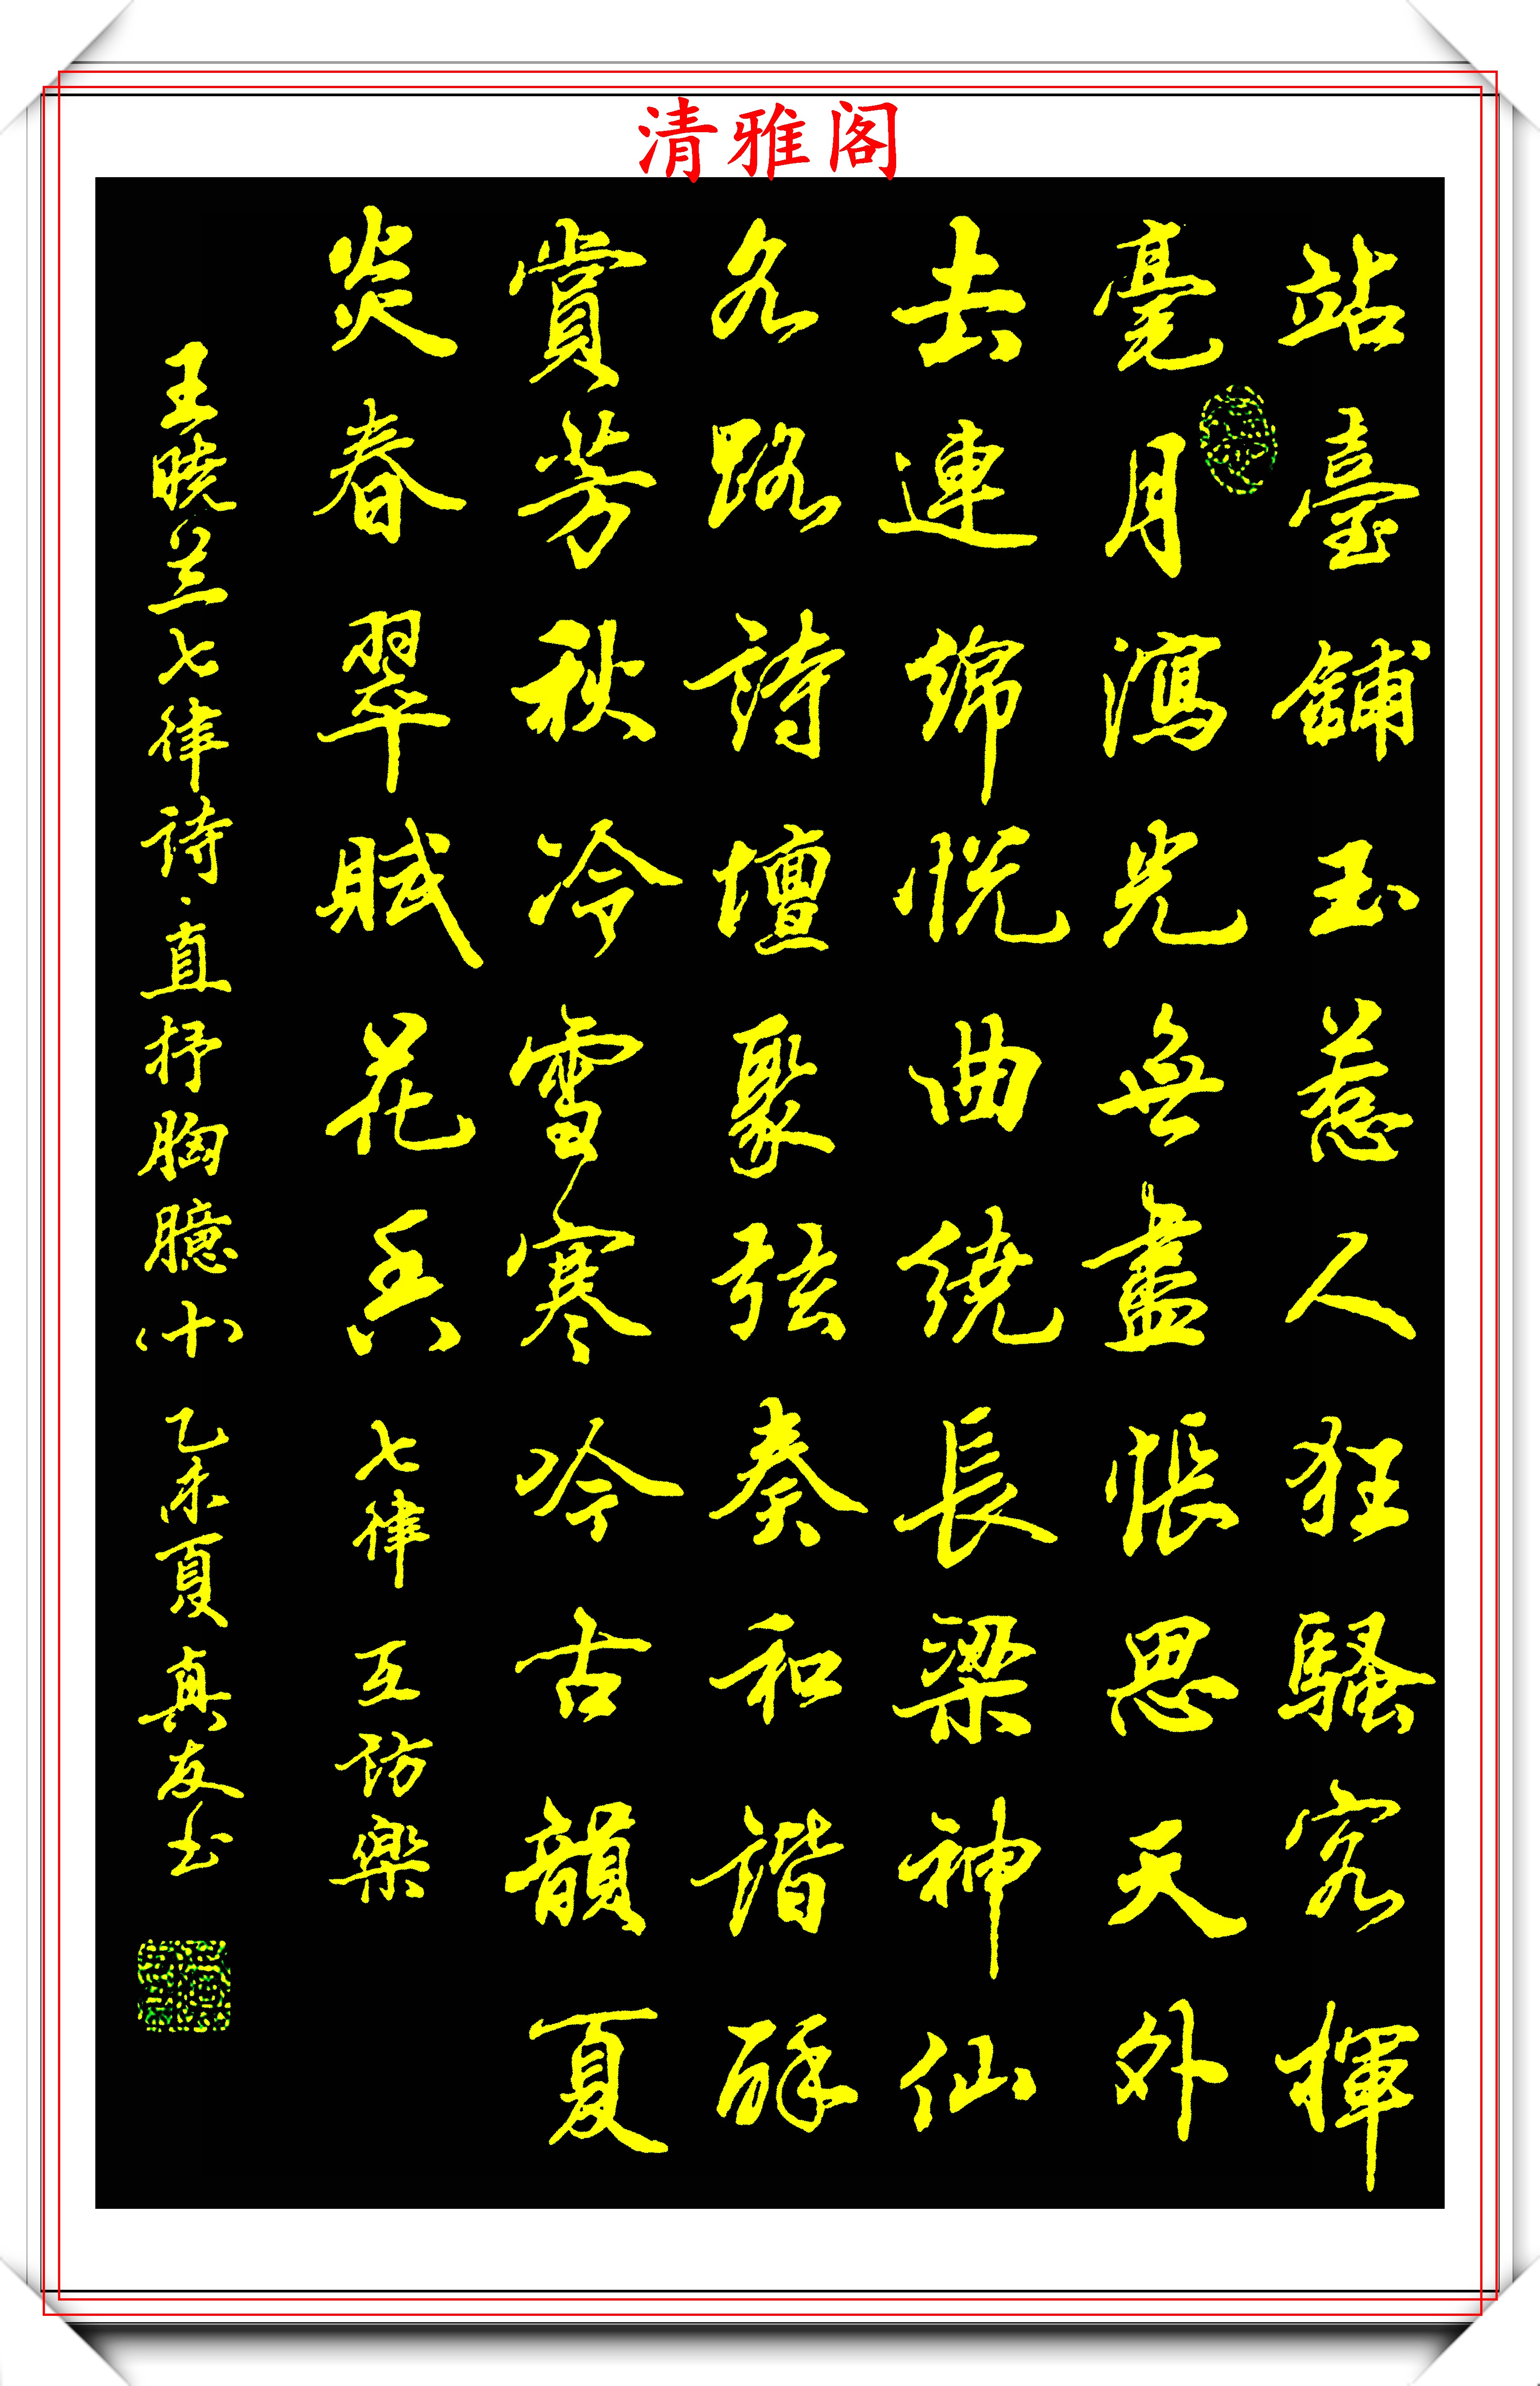 清雅阁
站臺鋪玉惹人狂騷客揮
毫月瀉光無盡悵思天外
去連綿悦曲繞長梁神仙
各路詩壇聚弦奏和谐酥
賞芳秋冷雪寒吟古韻夏
炎春翠賦花香 七律 互访樂
王曉兰七律诗·直抒胸臆(十) 乙未夏 真友书